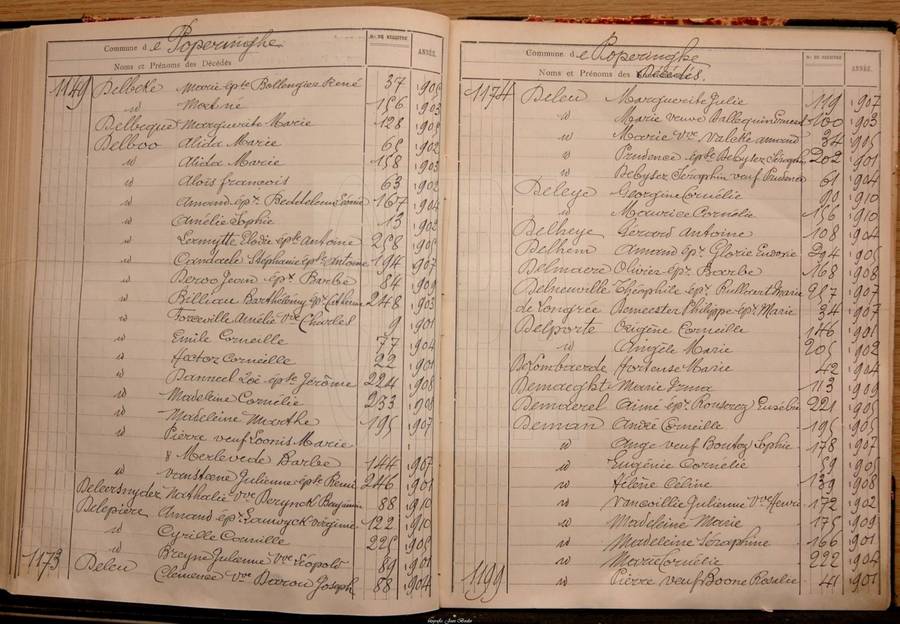 Commune de Poperinghe
Noms et Prénoms des Décédés
No. DE REGISTRE
ANNÉE
1149 Delbeke Marie épte Bollengier René 37 1905
id Maxime 156 1903
Delbecque Marguerite Marie 128 1905
Delboo Alida Marie 65 1902
id Alida Marie 158 1903
id Aloïs françois 63 1902
id Amand épx 167 1904
id Amélie Sophie 13 1902
id Lermytte Elodie épte Antoine 258 1905
id Candaele Stéphanie épte Antoine 194 1907
id Deroo Jean épx Barbe 84 1909
id Billiau Barthélemy épx 248 1903
id Forceville Amélie Vve Charles 9 1901
id Emile Corneille 77 1904
id Hector Corneille 22 1901
id Danneel Zoë épte Jérôme 224 1908
id Madeleine Cornélie 233 1908
id Madeleine Marthe 195 1907
id Pierre veuf Loonis Marie
& Merlevede Barbe 144 1907
id Julienne épte Remi 246 1901
Deleersnyder Nathalie Vve Derynck Benjamin 88 1910
Delepiere Amand épx Virginie 122 1910
id Cyrille Camille 225 1905
id Breyne Julienne Vve Léopold 89 1901
1173 Deleu Clémence Vve Joseph 88 1904
Commune de Poperinghe
Noms et Prénoms des Décédés.
No. DE REGISTRE
ANNÉE
1174 Deleu Marguerite Julie 119 1907
id Marie veuve 100 1903
id Marie Vve Valette Amand 34 1905
id Prudence épte Debyser Séraphin 202 1901
id Debyser Séraphin veuf Prudence 61 1904
Deleye Georgine Cornélie 90 1910
id Maurice Cornélie 156 1910
Delheye Gérard Antoine 108 1904
Delhem Amand épx Glorie Eudoxie 294 1905
Delmaere Olivier épx Barbe 168 1908
Delneuville Théophile épx Marie 257 1907
de Longrée Demeester Philippe épx Marie 34 1907
Delporte Eugène Corneille 146 1901
id Angèle Marie 205 1902
Hortense Marie 42 1904
Demaeght Marie Irma 113 1909
Demaerel Aimé épx 221 1905
Deman André Corneille 195 1905
id Ange veuf Sophie 178 1907
id Eugénie Cornélie 59 1905
id Hélène Céline 139 1908
id Vancoillie Julienne Vve Henri 172 1902
id Madeleine Marie 175 1909
id Madeleine Séraphine 166 1901
id Marie Cornélie 222 1904
1199 id Pierre veuf Boone Rosalie 41 1901